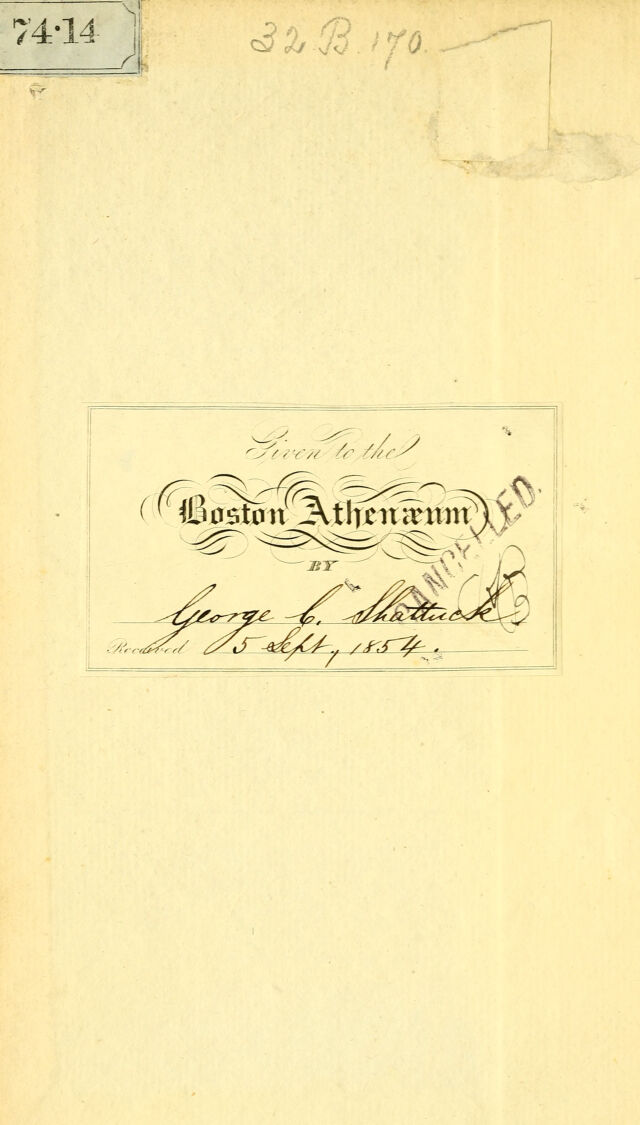 74·14
32 B. 170.
Given to the
Boston Athenæum
BY
CANCELLED.
George C. Shattuck
Received 5 Sept, 1854.